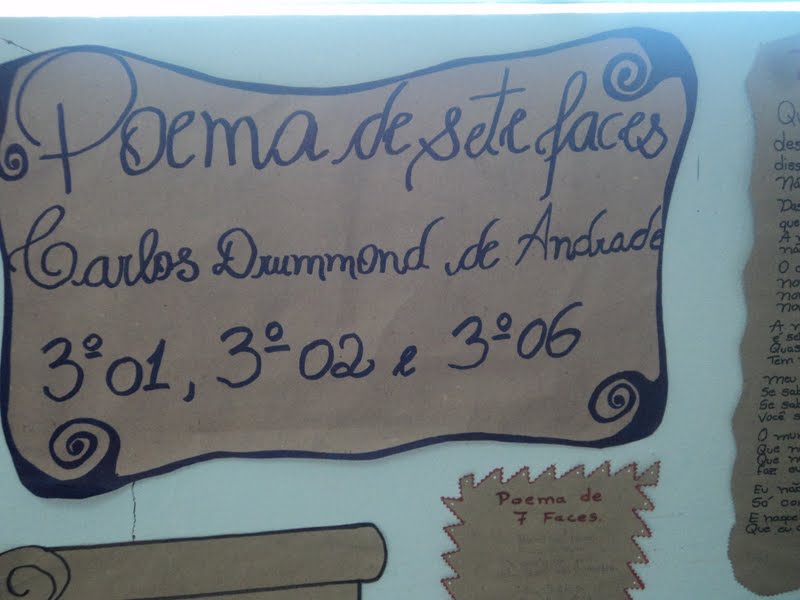 Poema de sete faces
Carlos Drummond de Andrade
3º 01, 3º 02 e 3º 06
Poema de
7 Faces.
Qu
des
diss
Nã
Das
que
A
nã
O
no
no
no
A
é se
Quas
Tem
Meu
Se sab
Se sab
Você s
O mu
Que
Que
Faz eu
Eu não
Só con
E naque
Que eu